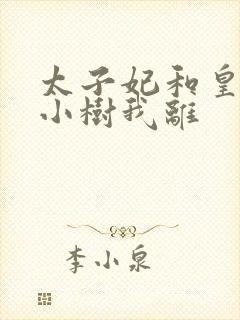 太子妃和皇
小樹我離
李小泉